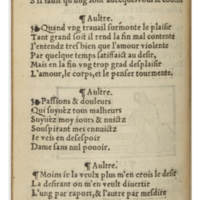 ¶ Aultre.
Quand vng trauail surmonte le plaisir
Tant grand soit il rend la fin mal contente
J'entendz tres bien que l'amour violente
Par quelque temps satisfaict au desir,
Mais en la fin vng trop grad desplaisir
L'amour, le corps, et le penser tourmente.
¶ Aultre.
Passions & douleurs
Qui suyuez tous malheurs
Suyuez moy iours & nuictz
Souspirant mes ennuictz
Je veis en desespoir
Dame sans nul pouoir.
¶ Aultre.
¶ Moins ie la veulx plus m'en crois le desir
La desirant on m'en veult diuertir
L'ung par raport, & l'autre par mesdire